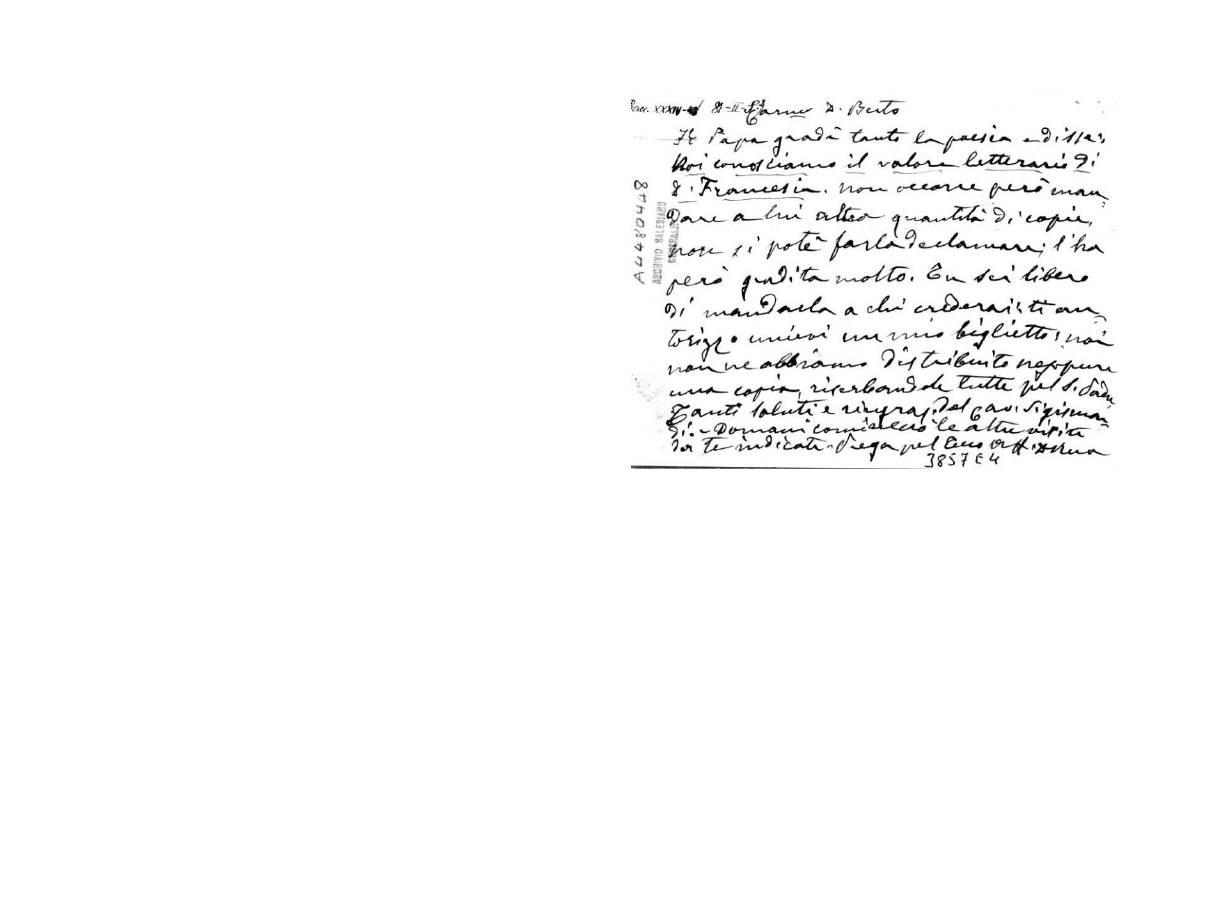 Car.mo D. Berto
Il Papa gradì tanto la poesia e disse:
Noi conosciamo il valore letterario di
D. Francesia. non occorre però man
dare a lui altra quantità di copie,
non si potè farla declamare; l'ha
però gradita molto. Tu sei libero
di mandarla a chi crederai; ti au
torizzo unirvi un mio biglietto; noi
non ne abbiamo distribuito neppure
una copia, riserbandole tutte pel S. Padre
Tanti saluti e ringraz. del Cav. Sigismon
di. - Domani comincerò le altre visite
da te indicate. Prega pel tuo aff. D. Rua
3857 E 4
A4480448
ARCHIVIO SALESIANO
CENTRALE